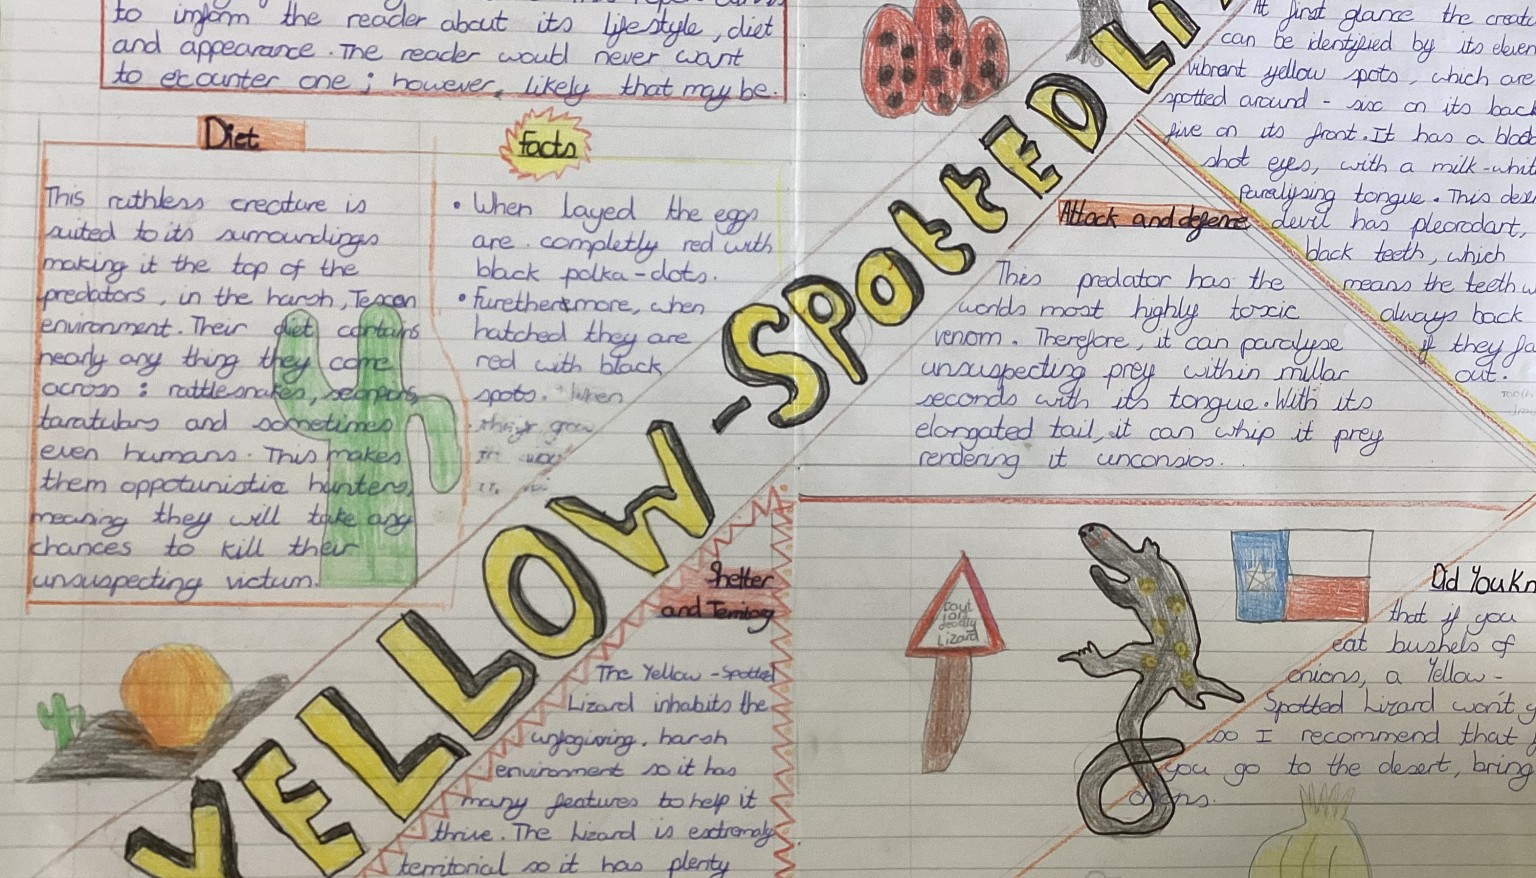 to inform the reader about its lifestyle, diet
and appearance. The reader would never want
to ecounter one; however, likely that may be.
Diet
This ruthless creature is
suited to its surroundings
making it the top of the
predators, in the harsh, Texan
environment. Their diet contains
nearly any thing they come
across: rattlesnakes,
and sometimes
even humans. This makes
them oppotunistic hunters,
meaning they will take any
chances to kill their
unsuspecting victum.
facts
• When layed the eggs
are completly red with
black polka-dots.
• furethermore, when
hatched they are
red with black
spots. When
YELLOW-SPOttED LI
At first glance the creatu
can be identified by its eleven
vibrant yellow spots, which are
spotted around - six on its back
five on its front. It has a blood
shot eyes, with a milk-whit
paralysing tongue. This dese
devil has
black teeth, which
means the teeth w
always back
if they fa
out.
Attack and defence
This predator has the
worlds most highly toxic
venom. Therefore, it can paralyse
unsuspecting prey within millar
seconds with its tongue. With its
elongated tail, it can whip it prey
rendering it unconsios.
Shelter
and Territory
The Yellow-Spotted
Lizard inhabits the
unfogiving, harsh
environment so it has
many features to help it
thrive. The Lizard is extremaly
territorial so it has plenty
deadly
Lizard
Did You Kn
that if you
eat bushels of
onions, a Yellow-
Spotted Lizard won't
so I recommend that
you go to the desert, bring
onions.